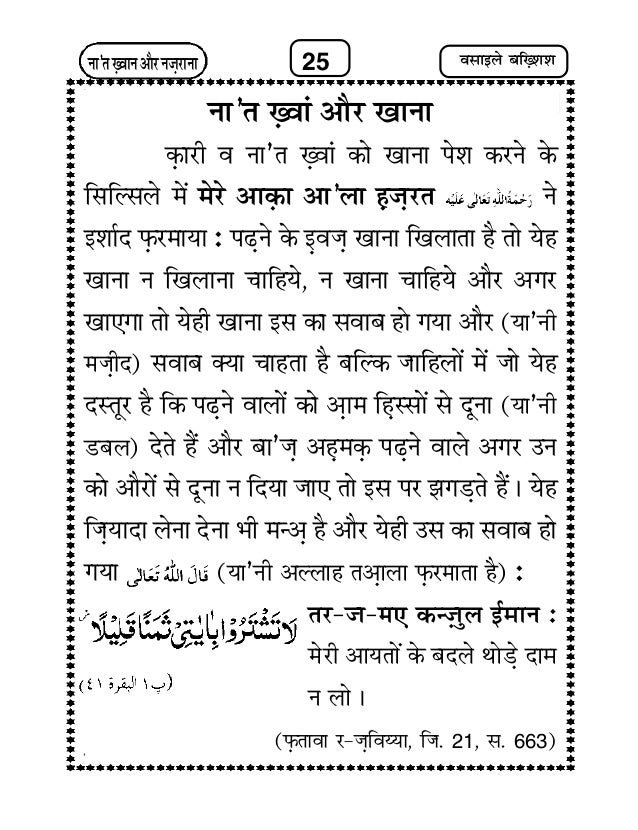 ना'त ख़्वान और नज़राना
25
वसाइले बख़्शिश
ना'त ख़्वां और खाना
क़ारी व ना'त ख़्वां को खाना पेश करने के
सिल्सिले में मेरे आक़ा आ'ला हज़रत رَحْمَةُاللهِ تَعَالٰى عَلَيْه ने
इर्शाद फ़रमाया : पढ़ने के इवज़ खाना खिलाता है तो येह
खाना न खिलाना चाहिये, न खाना चाहिये और अगर
खाएगा तो येही खाना इस का सवाब हो गया और (या'नी
मज़ीद) सवाब क्या चाहता है बल्कि जाहिलों में जो येह
दस्तूर है कि पढ़ने वालों को आ़म हिस्सों से दूना (या'नी
डबल) देते हैं और बा'ज़ अह़मक़ पढ़ने वाले अगर उन
को औरों से दूना न दिया जाए तो इस पर झगड़ते हैं । येह
ज़ियादा लेना देना भी मन्अ़ है और येही उस का सवाब हो
गया قَالَ اللهُ تَعَالٰى (या'नी अल्लाह तआ़ला फ़रमाता है) :
لَا تَشْتَرُوْا بِاٰيٰتِىْ ثَمَنًا قَلِيْلًا ۖ
(پ۱ البقرة ٤١)
तर-ज-मए कन्ज़ुल ईमान :
मेरी आयतों के बदले थोड़े दाम
न लो ।
(फ़तावा र-ज़विय्या, जि. 21, स. 663)